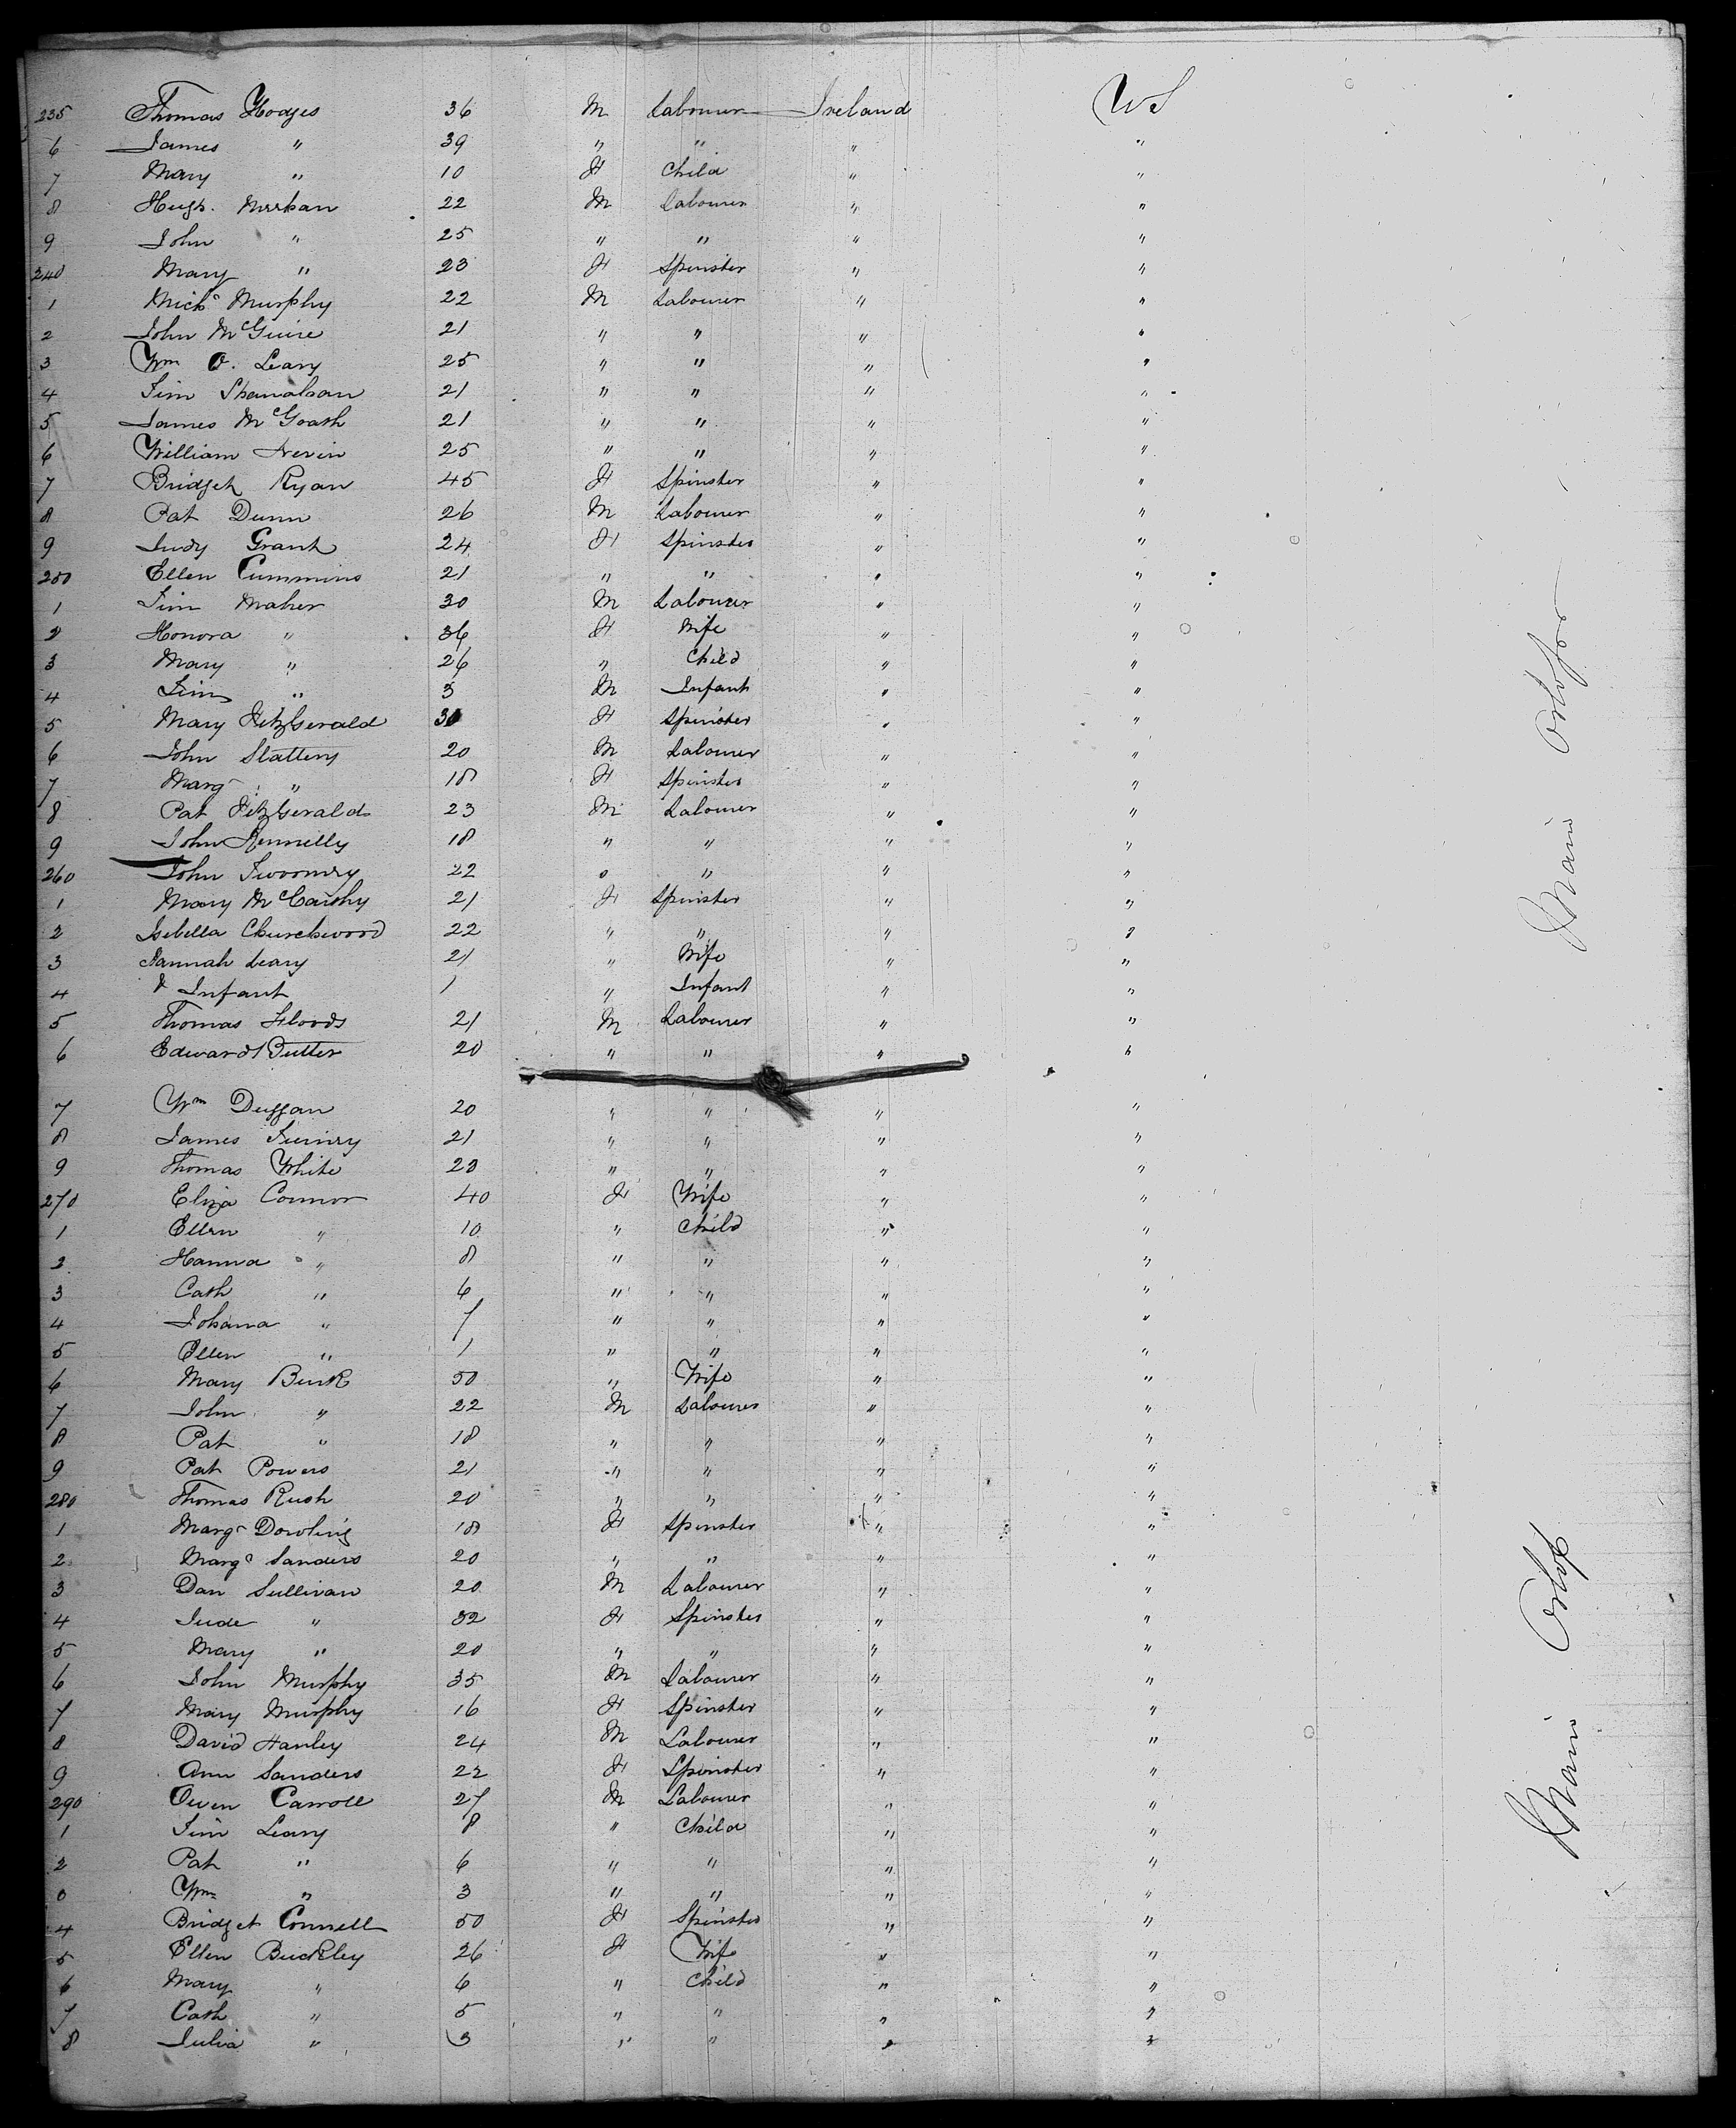 235 Thomas Hodges 36 M Labourer Ireland US
6 James " 39 " " " "
7 Mary " 10 F Child " "
8 Hugh 22 M Labourer " "
9 John " 25 " " " "
240 Mary " 23 F Spinster " "
1 Michl Murphy 22 M Labourer " "
2 John McGuire 21 " " " "
3 Wm O. Leary 25 " " " "
4 Tim Shanahan 21 " " " "
5 James McGoath 21 " " " "
6 William Nevin 25 " " " "
7 Bridget Ryan 45 F Spinster " "
8 Pat Dunn 26 M Labourer " "
9 Judy Grant 24 F Spinster " "
250 Ellen Cummins 21 " " " "
1 Tim Maher 30 M Labourer " "
2 Honora " 36 F Wife " "
3 Mary " 26 " Child " "
4 Tim " 3 M Infant " "
5 Mary FitzGerald 30 F Spinster " "
6 John Slattery 20 M Labourer " "
7 Marg " 18 F Spinster " "
8 Pat FitzGerald 23 M Labourer " "
9 John Kennelly 18 " " " "
260 John Twoomey 22 " " " "
1 Mary McCarthy 21 F Spinster " "
2 Isebella Churchwood 22 " " " "
3 Hannah Leary 21 " Wife " "
4 & Infant 1 " Infant " "
5 Thomas Floods 21 M Labourer " "
6 Edward Butter 20 " " " "
7 Wm Duggan 20 " " " "
8 James 21 " " " "
9 Thomas White 23 " " " "
270 Eliza Connor 40 F Wife " "
1 Ellen " 10 " Child " "
2 Hanna " 8 " " " "
3 Cath " 6 " " " "
4 Johana " 7 " " " "
5 Ellen " 1 " " " "
6 Mary Burk 50 " Wife " "
7 John " 22 M Labourer " "
8 Pat " 18 " " " "
9 Pat Powers 21 " " " "
280 Thomas Rush 20 " " " "
1 Margt Dowling 18 F Spinster " "
2 Margt Sanders 20 " " " "
3 Dan Sullivan 20 M Labourer " "
4 Jude " 32 F Spinster " "
5 Mary " 20 " " " "
6 John Murphy 35 M Labourer " "
7 Mary Murphy 16 F Spinster " "
8 David Hanley 24 M Labourer " "
9 Ann Sanders 22 F Spinster " "
290 Owen Carroll 27 M Labourer " "
1 Tim Leary 8 " Child " "
2 Pat " 6 " " " "
3 Wm " 3 " " " "
4 Bridget Connell 50 F Spinster " "
5 Ellen Buckley 26 F Wife " "
6 Mary " 6 " Child " "
7 Cath " 5 " " " "
8 Julia " 3 " " " "
Main Orlop
Main Orlop